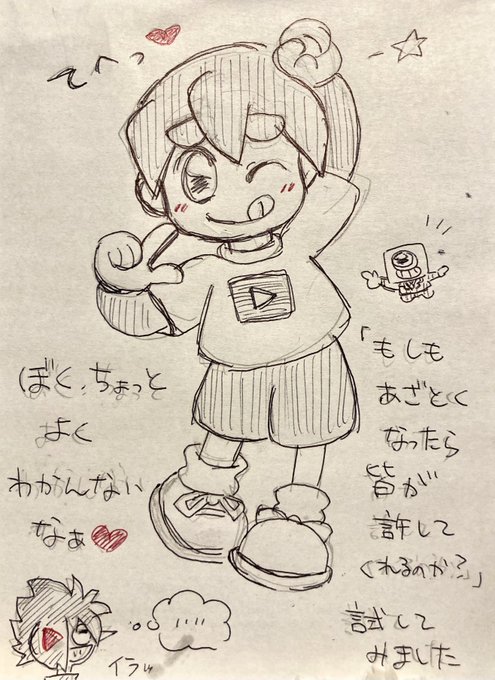 てへっ
「もしも
あざとく
なったら
皆が
許して
くれるのか?」
試して
みました
ぼく、ちょっと
よく
わかんない
なぁ
イラッ